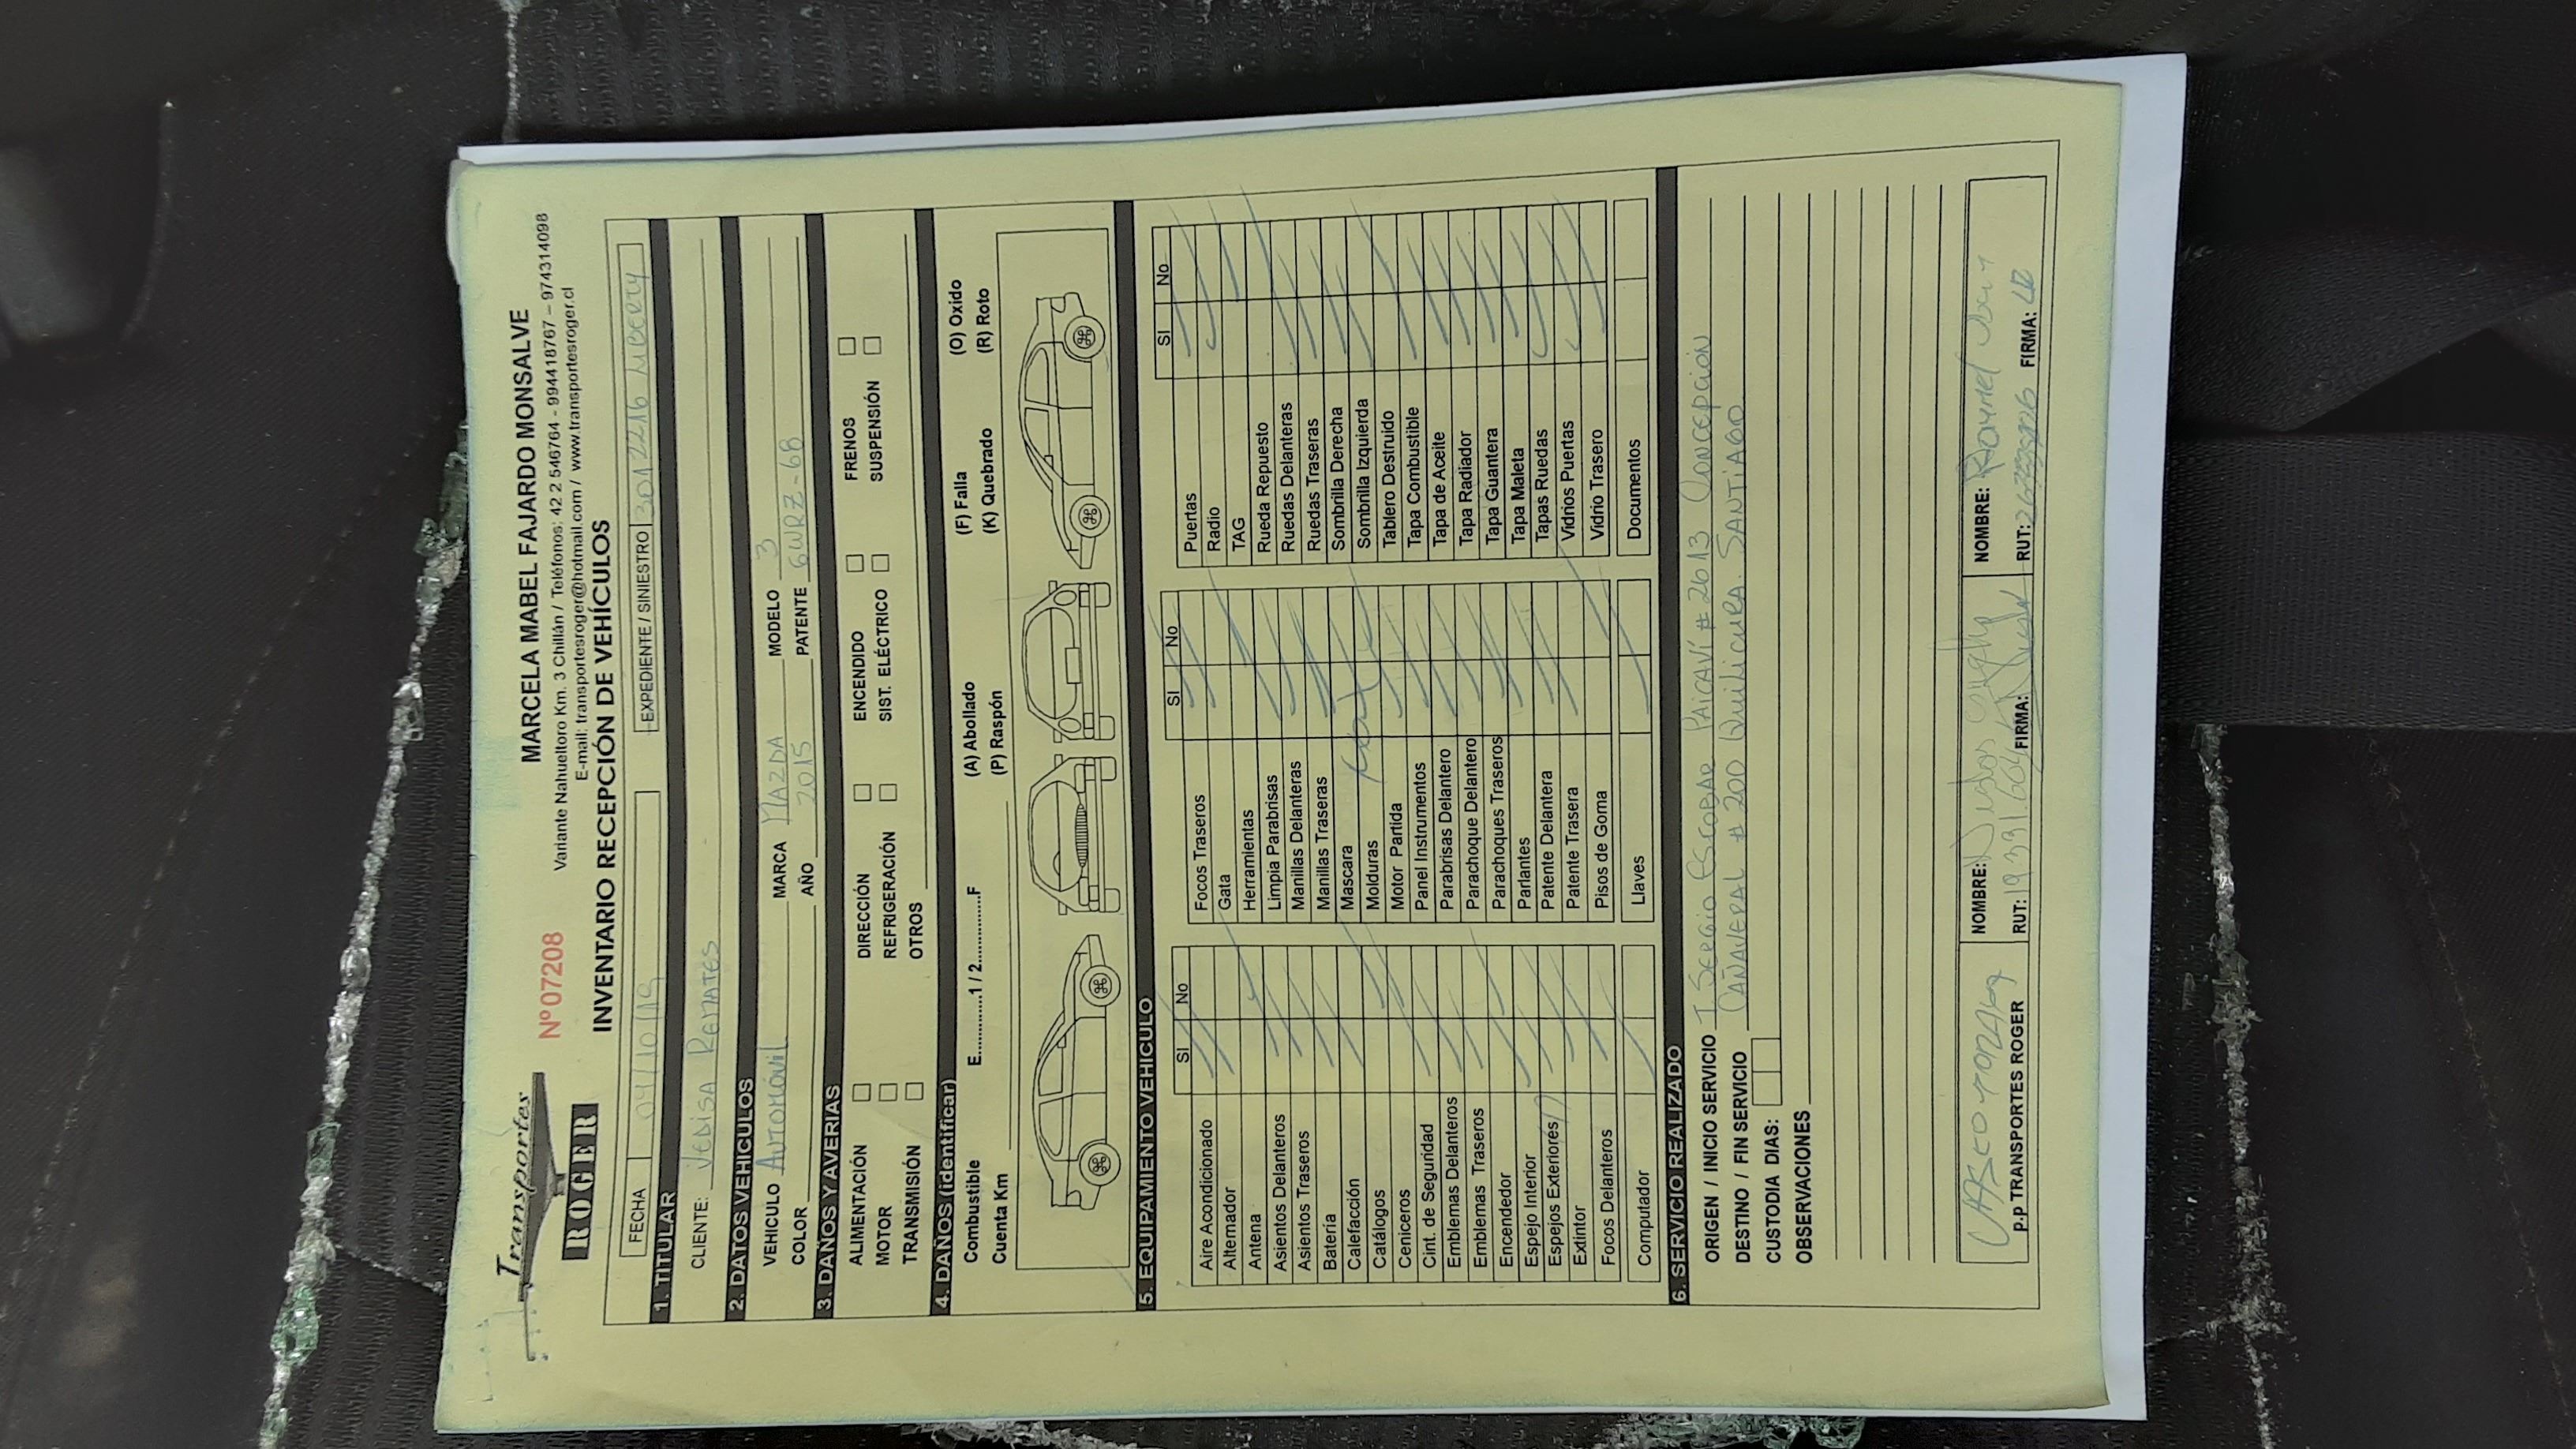 Transportes
ROGER
Nº 07208
MARCELA MABEL FAJARDO MONSALVE
Variante Nahueltoro Km. 3 Chillán / Teléfonos: 42 2 546764 - 994418767 – 974314098
E-mail: transportesroger@hotmail.com / www.transportesroger.cl
INVENTARIO RECEPCIÓN DE VEHÍCULOS
FECHA 04/10/19 EXPEDIENTE / SINIESTRO 30122216 LIBERTY
1. TITULAR
CLIENTE: VEDISA REMATES
2. DATOS VEHICULOS
VEHICULO AUTOMÓVIL MARCA MAZDA MODELO 3
COLOR AÑO 2015 PATENTE GWRZ-68
3. DAÑOS Y AVERIAS
ALIMENTACIÓN DIRECCIÓN ENCENDIDO FRENOS
MOTOR REFRIGERACIÓN SIST. ELÉCTRICO SUSPENSIÓN
TRANSMISIÓN OTROS
4. DAÑOS (identificar)
Combustible E.............1 / 2.............F (A) Abollado (F) Falla (O) Oxido
Cuenta Km (P) Raspón (K) Quebrado (R) Roto
5. EQUIPAMIENTO VEHICULO
SI No
Aire Acondicionado
Alternador
Antena
Asientos Delanteros
Asientos Traseros
Batería
Calefacción
Catálogos
Ceniceros
Cint. de Seguridad
Emblemas Delanteros
Emblemas Traseros
Encendedor
Espejo Interior
Espejos Exteriores
Extintor
Focos Delanteros
Computador
SI No
Focos Traseros
Gata
Herramientas
Limpia Parabrisas
Manillas Delanteras
Manillas Traseras
Mascara
Molduras
Motor Partida
Panel Instrumentos
Parabrisas Delantero
Parachoque Delantero
Parachoques Traseros
Parlantes
Patente Delantera
Patente Trasera
Pisos de Goma
Llaves
SI No
Puertas
Radio
TAG
Rueda Repuesto
Ruedas Delanteras
Ruedas Traseras
Sombrilla Derecha
Sombrilla Izquierda
Tablero Destruido
Tapa Combustible
Tapa de Aceite
Tapa Radiador
Tapa Guantera
Tapa Maleta
Tapas Ruedas
Vidrios Puertas
Vidrio Trasero
Documentos
6. SERVICIO REALIZADO
ORIGEN / INICIO SERVICIO T SERGIO ESCOBAR PAICAVÍ # 2613 CONCEPCIÓN
DESTINO / FIN SERVICIO CAÑAVERAL # 200 QUILICURA. SANTIAGO
CUSTODIA DIAS:
OBSERVACIONES
NOMBRE: NOMBRE:
p.p TRANSPORTES ROGER RUT: FIRMA: RUT: FIRMA: